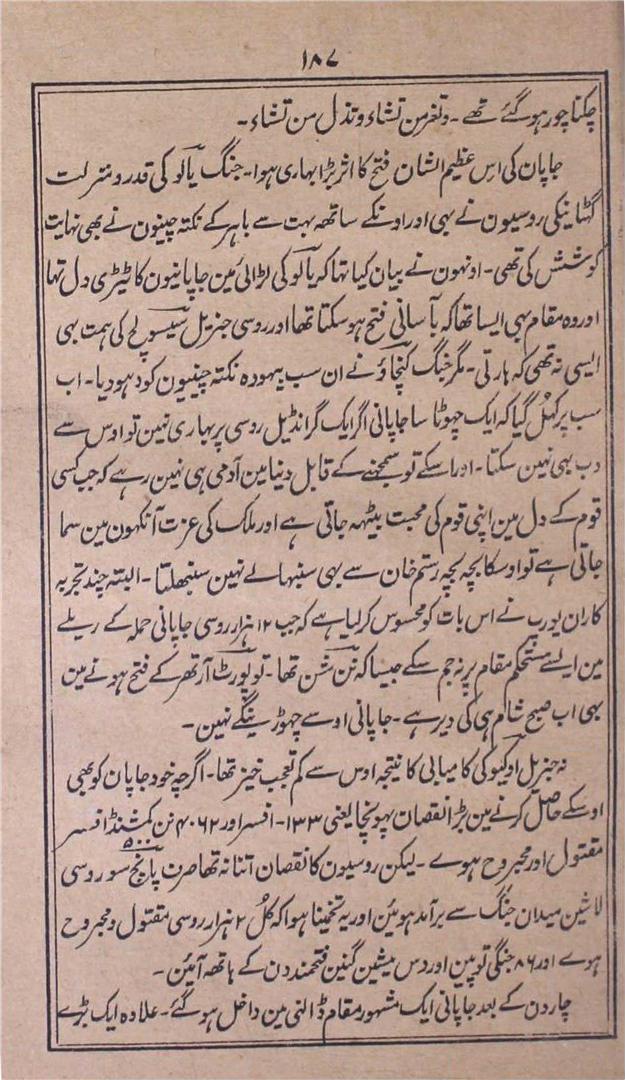 ۱۸۷
چکنا چور ہو گئے تھے ۔ وتعز من تشاء وتذل من تشاء ۔
جاپان کی اس عظیم الشان فتح کا اثر بڑا بہاری ہوا ۔ جنگ یالو کی قدر و منزلت
گہٹانیکی روسیون نے بہی اور اونکے ساتھہ بہت سے باہر کے نکتہ چینون نے بھی نہایت
کوشش کی تھی ۔ اونہون نے بیان کیا تہا کہ یالو کی لڑائی مین جاپانیون کا ٹیڑی دل تہا
اور وہ مقام بہی ایسا تھا کہ بآسانی فتح ہو سکتا تھا اور روسی جنریل سیسولچ کی ہمت بہی
ایسی نہ تھی کہ ہارتی ۔ مگر جنگ کنچاؤ نے ان سب بیہودہ نکتہ چینیون کو دہو دیا ۔ اب
سب پر کہل گیا کہ ایک چہوٹا سا جاپانی اگر ایک گرانڈیل روسی پر بہاری نہین تو اوس سے
دب بہی نہین سکتا ۔ اور اسکے تو سمجہنے کے قابل دنیا مین آدمی ہی نہین رہے کہ جب کسی
قوم کے دل مین اپنی قوم کی محبت بیٹہہ جاتی ہے اور ملک کی عزت آنکہون مین سما
جاتی ہے تو اوسکا بچہ بچہ رستم خان سے بہی سنبہالے نہین سنبہلتا ۔ البتہ چند تجربہ
کاران یورپ نے اس بات کو محسوس کر لیا ہے کہ جب ۱۲ ہزار روسی جاپانی حملہ کے ریلے
مین ایسے مستحکم مقام پر نہ جم سکے جیسا کہ نن شن تھا ۔ تو پورٹ آرتھر کے فتح ہونے مین
بہی اب صبح شام ہی کی دیر ہے ۔ جاپانی اوسے چہوڑینگے نہین ۔
نہ جنریل اوکیو کی کامیابی کا نتیجہ اوس سے کم تعجب خیز تھا ۔ اگرچہ خود جاپان کو بھی
اوسکے حاصل کرنے مین بڑا نقصان پہونچا یعنی ۱۳۳ ۔ افسر اور ۴۰۶۲ نن کمشنڈ افسر
مقتول اور مجروح ہوے ۔ لیکن روسیون کا نقصان اتنا نہ تھا صرف پانچ سو ۵۰۰ روسی
لاشین میدان جنگ سے برآمد ہوئین اور یہ تخمینا ہوا کہ کل ۲ ہزار روسی مقتول و مجروح
ہوے اور ۸۶ جنگی توپین اور دس میشین گنین فتحمندون کے ہاتھہ آئین ۔
چار دن کے بعد جاپانی ایک مشہور مقام ڈالنی مین داخل ہو گئے ۔ علاوہ ایک بڑے